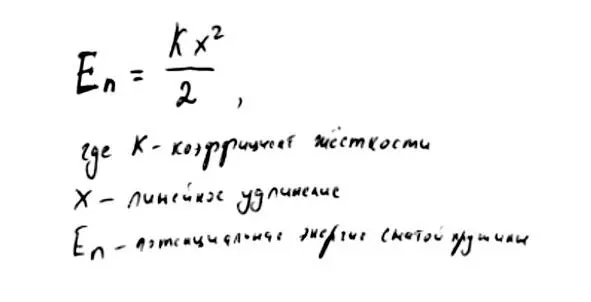 Eп = Kx²/2,
где K - коэффициент жёсткости
X - линейное удлинение
Eп - потенциальная энергия сжатой пружины